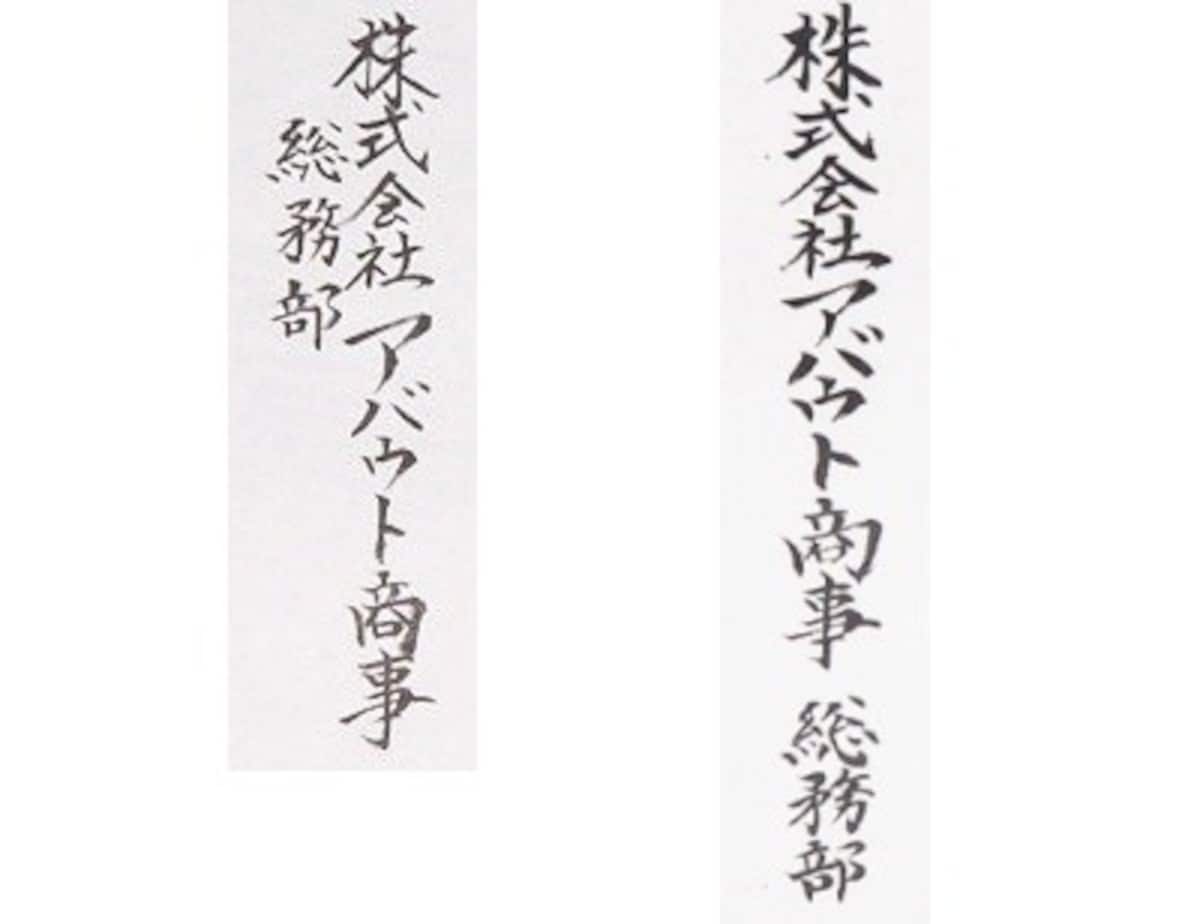 株式会社アバウト商事
総務部
株式会社アバウト商事 総務部